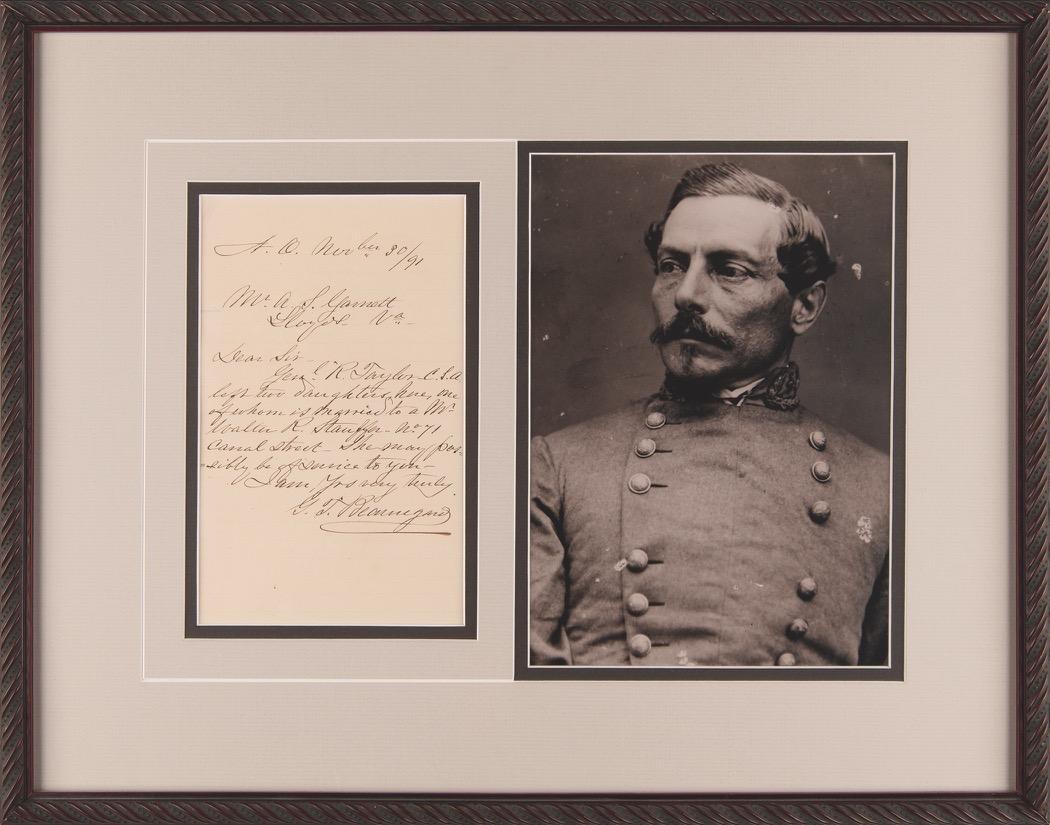 N. O. Novber 30/91
Mr. A. S. Garnett
Lloyds Va.
Dear Sir
Genl. R. Taylor C.S.A
left two daughters here, one
of whom is married to a Mr.
Walter R. Stauffer No. 71
Canal Street – She may pos-
sibly be of service to you –
I am, Yrs very truly,
G. T. Beauregard